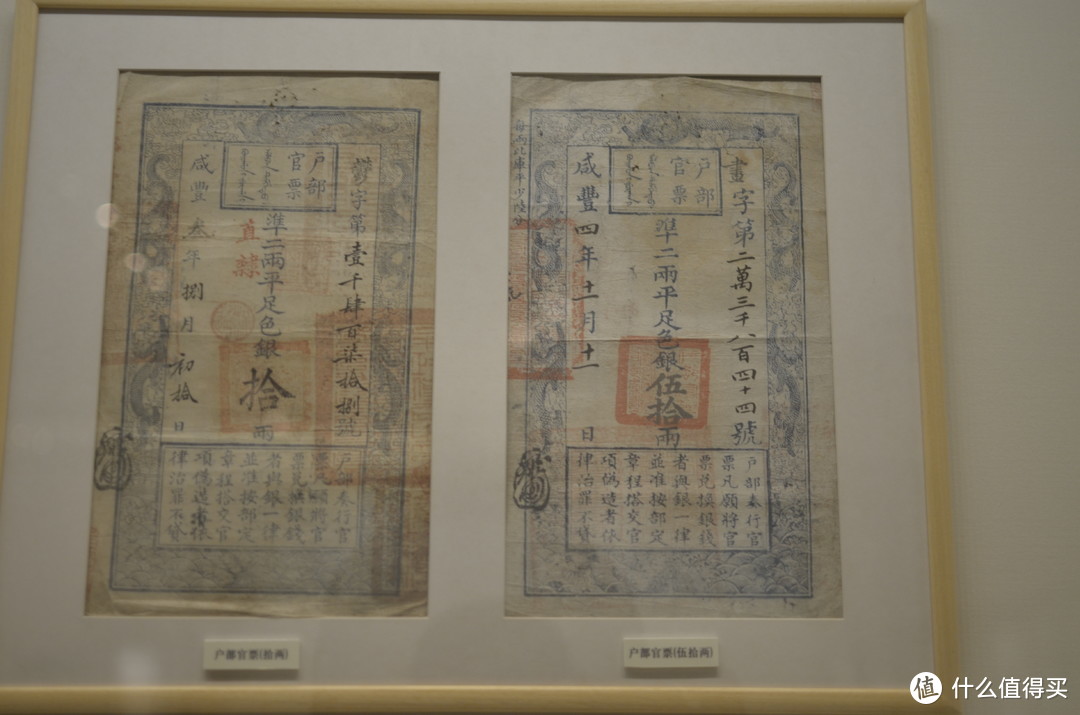 字第壹千肆百柒拾捌號
戶部
官票
準二兩平足色銀拾兩
直隸
咸豐叁年捌月初拾日
戶部奉行官
票凡願將官
票兌換銀錢
者與銀一律
並准按部定
章程搭交官
項偽造者依
律治罪不貸
畫字第二萬三千八百四十四號
戶部
官票
準二兩平足色銀伍拾兩
咸豐四年十一月十一日
每兩比庫平少陸分
戶部奉行官
票凡願將官
票兌換銀錢
者與銀一律
並准按部定
章程搭交官
項偽造者依
律治罪不貸
户部官票(拾两)
户部官票(伍拾两)
值 什么值得买